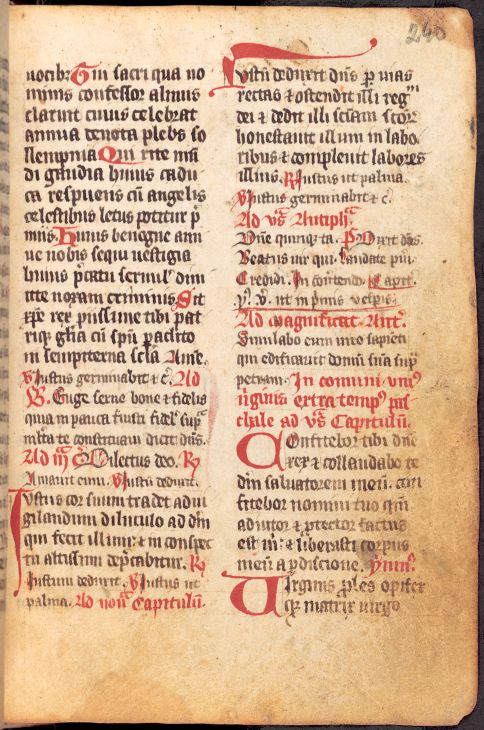 240
nocibꝫ In sacri qua no
minis confessor almus
claruit cuius celebrat
annua deuota plebs so
llempnia Qui rite mūdi
gaudia huius cadu
ca respuens cū angelis
celestibus letus potitur p̄
miis Huius benegne an
nue nobis sequi uestigia
huius p̄catu seruulꝰ dim
itte noxam criminis Sit
xp̄e rex piissime tibi pat
riqꝫ glīa cū spū paraclito
in sempiterna scła Amē.
℣ Justus germinabit ⁊ c̄. Ad
Euge serue bone ⁊ fidelis
quia in pauca fuisti fidelꝭ supᵃ
ml̄ta te constituam dicit dn̄s.
Ad iii C Dilectus deo. ℟
Amauit eum. ℣ Justū deduxit.
Justus cor suum tradet ad ui
gilandum diluculo ad dn̄m
qui fecit illum: ⁊ in conspec
tu altissimi dep̄cabitur. ℟
Justum deduxit. ℣ Justus ut
palma. Ad nonā Capitulū.
Justū deduxit dn̄s p uias
rectas ⁊ ostendit illi reg
dei ⁊ dedit illi sciam scōr
honestauit illum in labo
ribus ⁊ compleuit labores
illius. ℟ Justus ut palma.
℣ Justus germinabit ⁊ c̄.
Ad vs̄ Antiph̄a
Dn̄e quinqꝫ ta. Ps Dixit dn̄s.
Beatus uir qui. Laudate pūi
Credidi. In conuertendo. Capit.
℟ ℣ ut in primis vesp̄is
Ad magnificat. Ant.
Similabo eum uiro sapieti
qui edificauit domū suā sup
petram. In comuni uniꝰ
uirginis extra tempꝰ pas
chale ad vs̄ Capitulū.
Confitebor tibi dn̄e
rex ⁊ collaudabo te
dm̄ saluatorem meū. con
fitebor nomini tuo qm̄
adiutor ⁊ ꝓtector factus
est m̄: ⁊ liberasti corpus
meū a ꝑdicione. Ymnꝰ.
Virginis ꝓles opifex
qꝫ matris uirgo